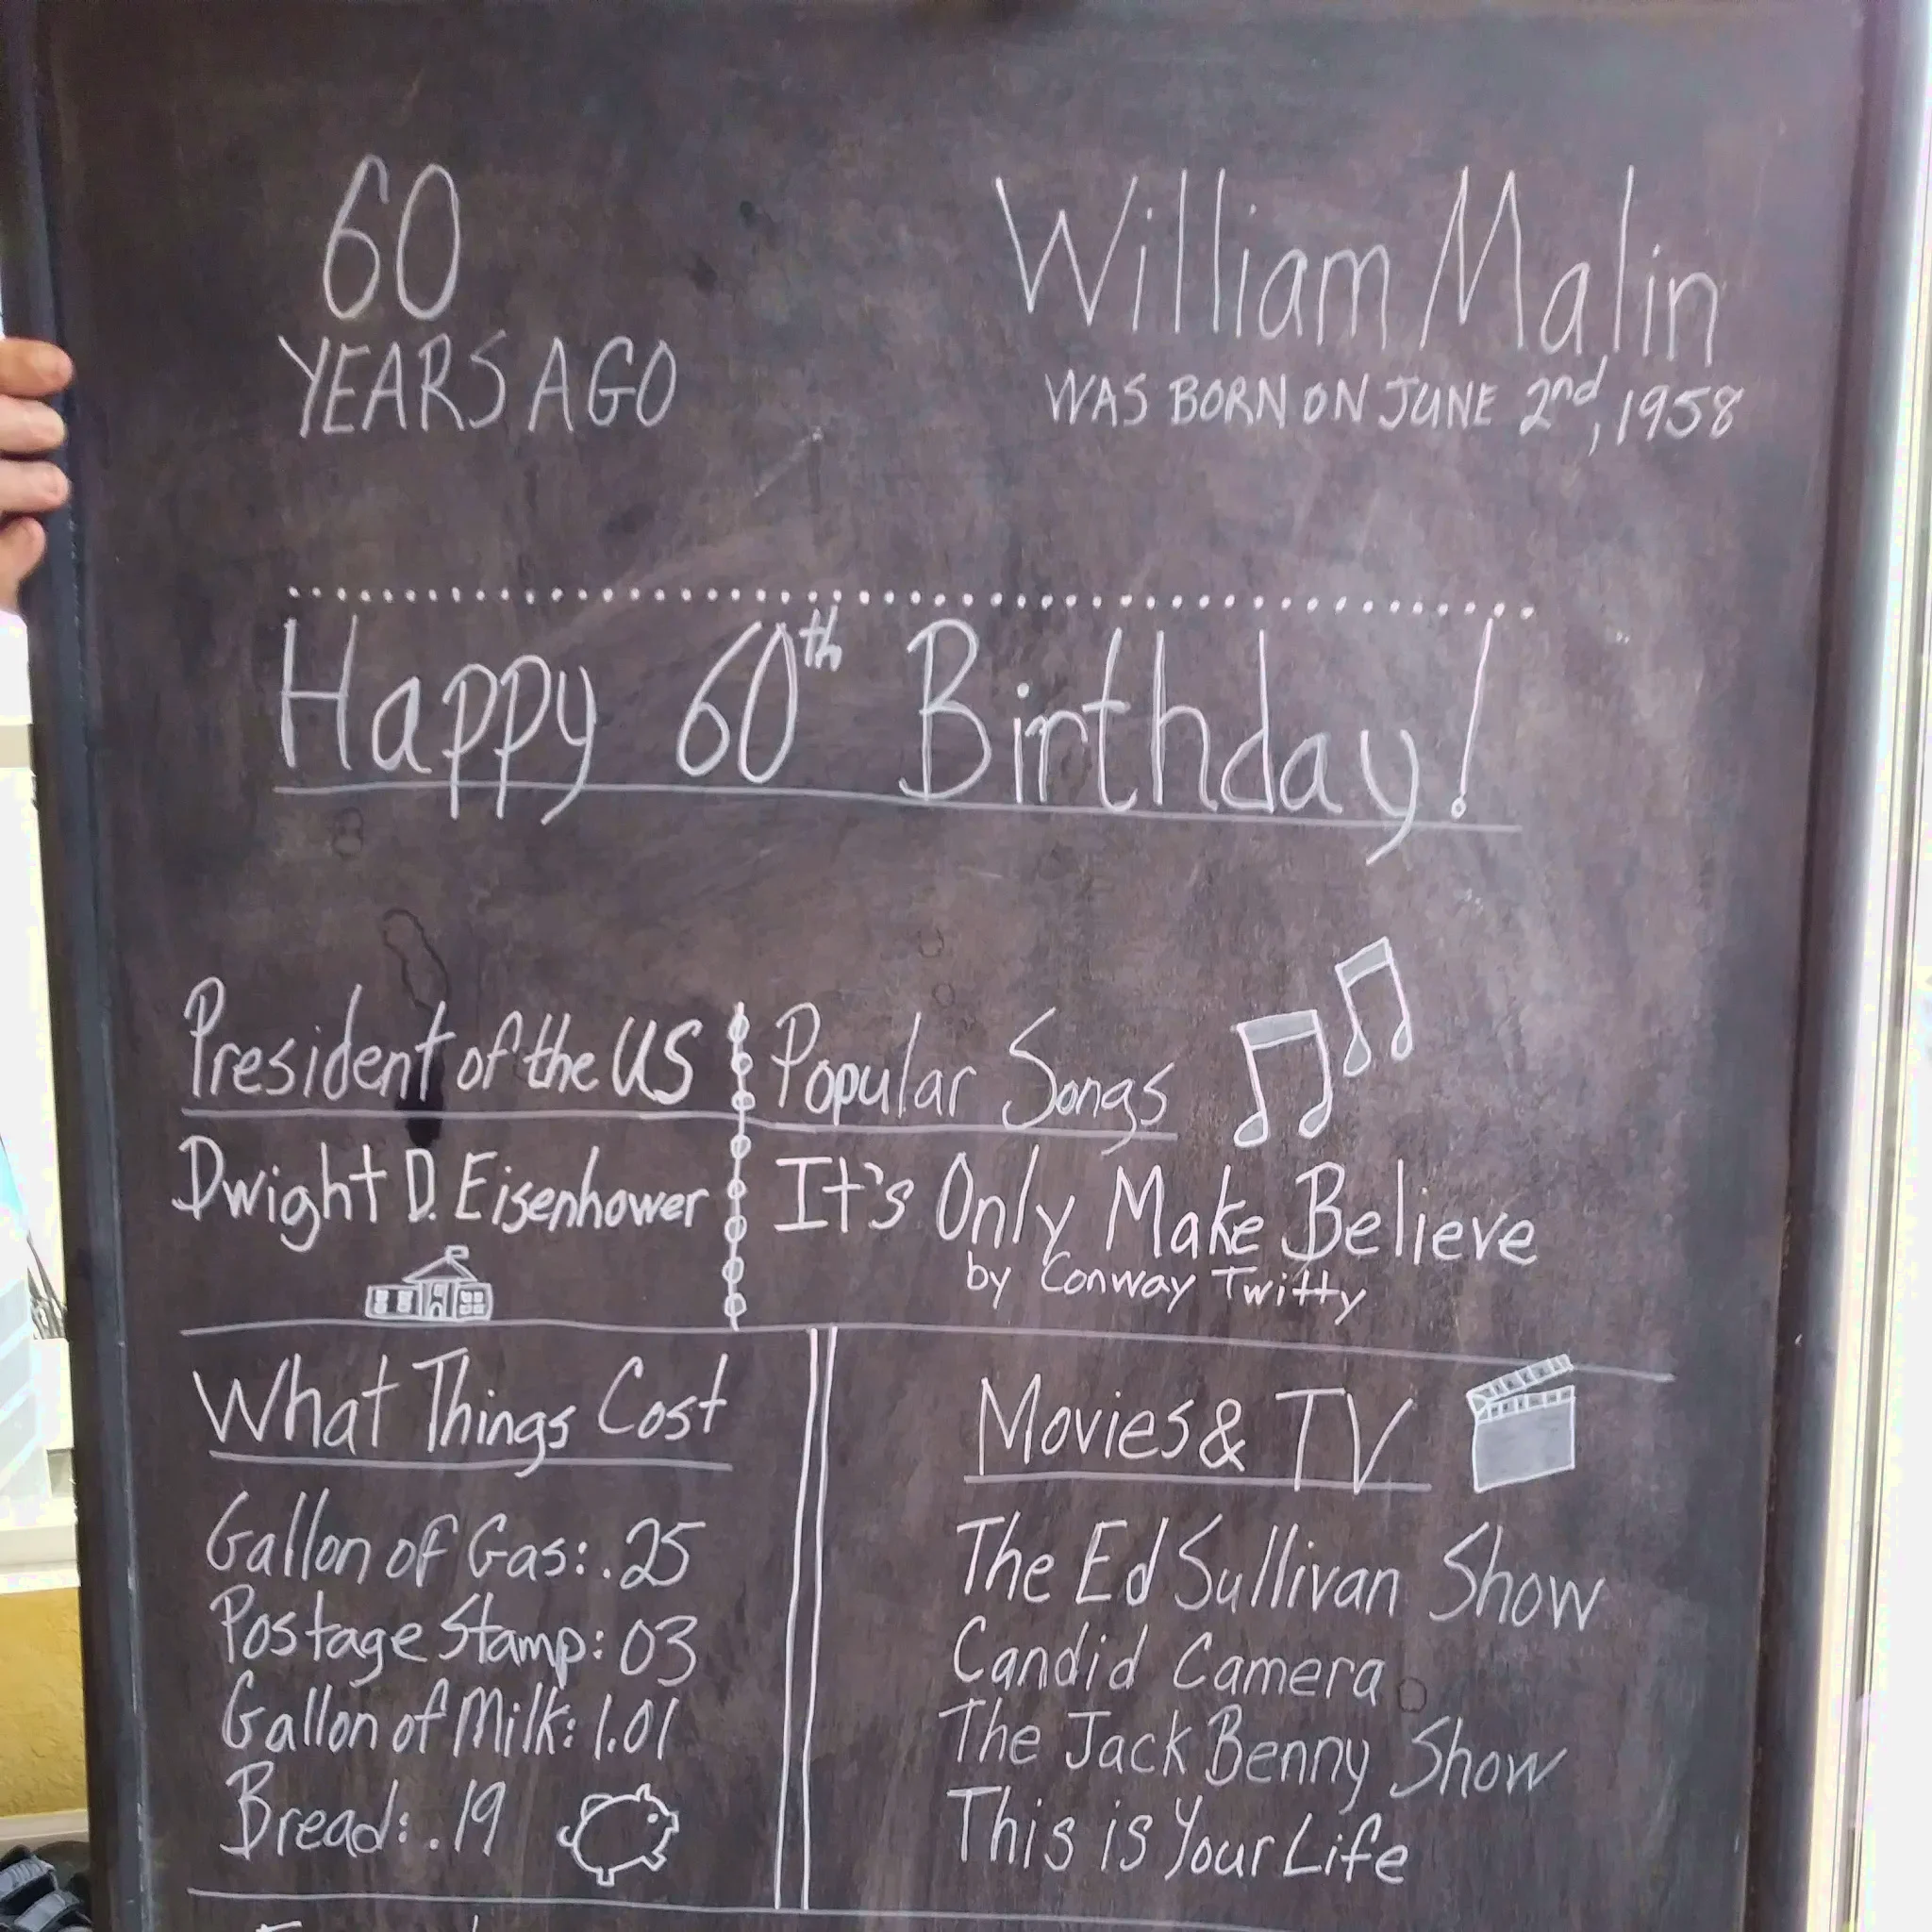 60
YEARS AGO
William Malin
WAS BORN ON JUNE 2nd, 1958
Happy 60th Birthday!
President of the US
Dwight D. Eisenhower
Popular Songs
It's Only Make Believe
by Conway Twitty
What Things Cost
Gallon of Gas: .25
Postage Stamp: 03
Gallon of Milk: 1.01
Bread: .19
Movies & TV
The Ed Sullivan Show
Candid Camera
The Jack Benny Show
This is Your Life